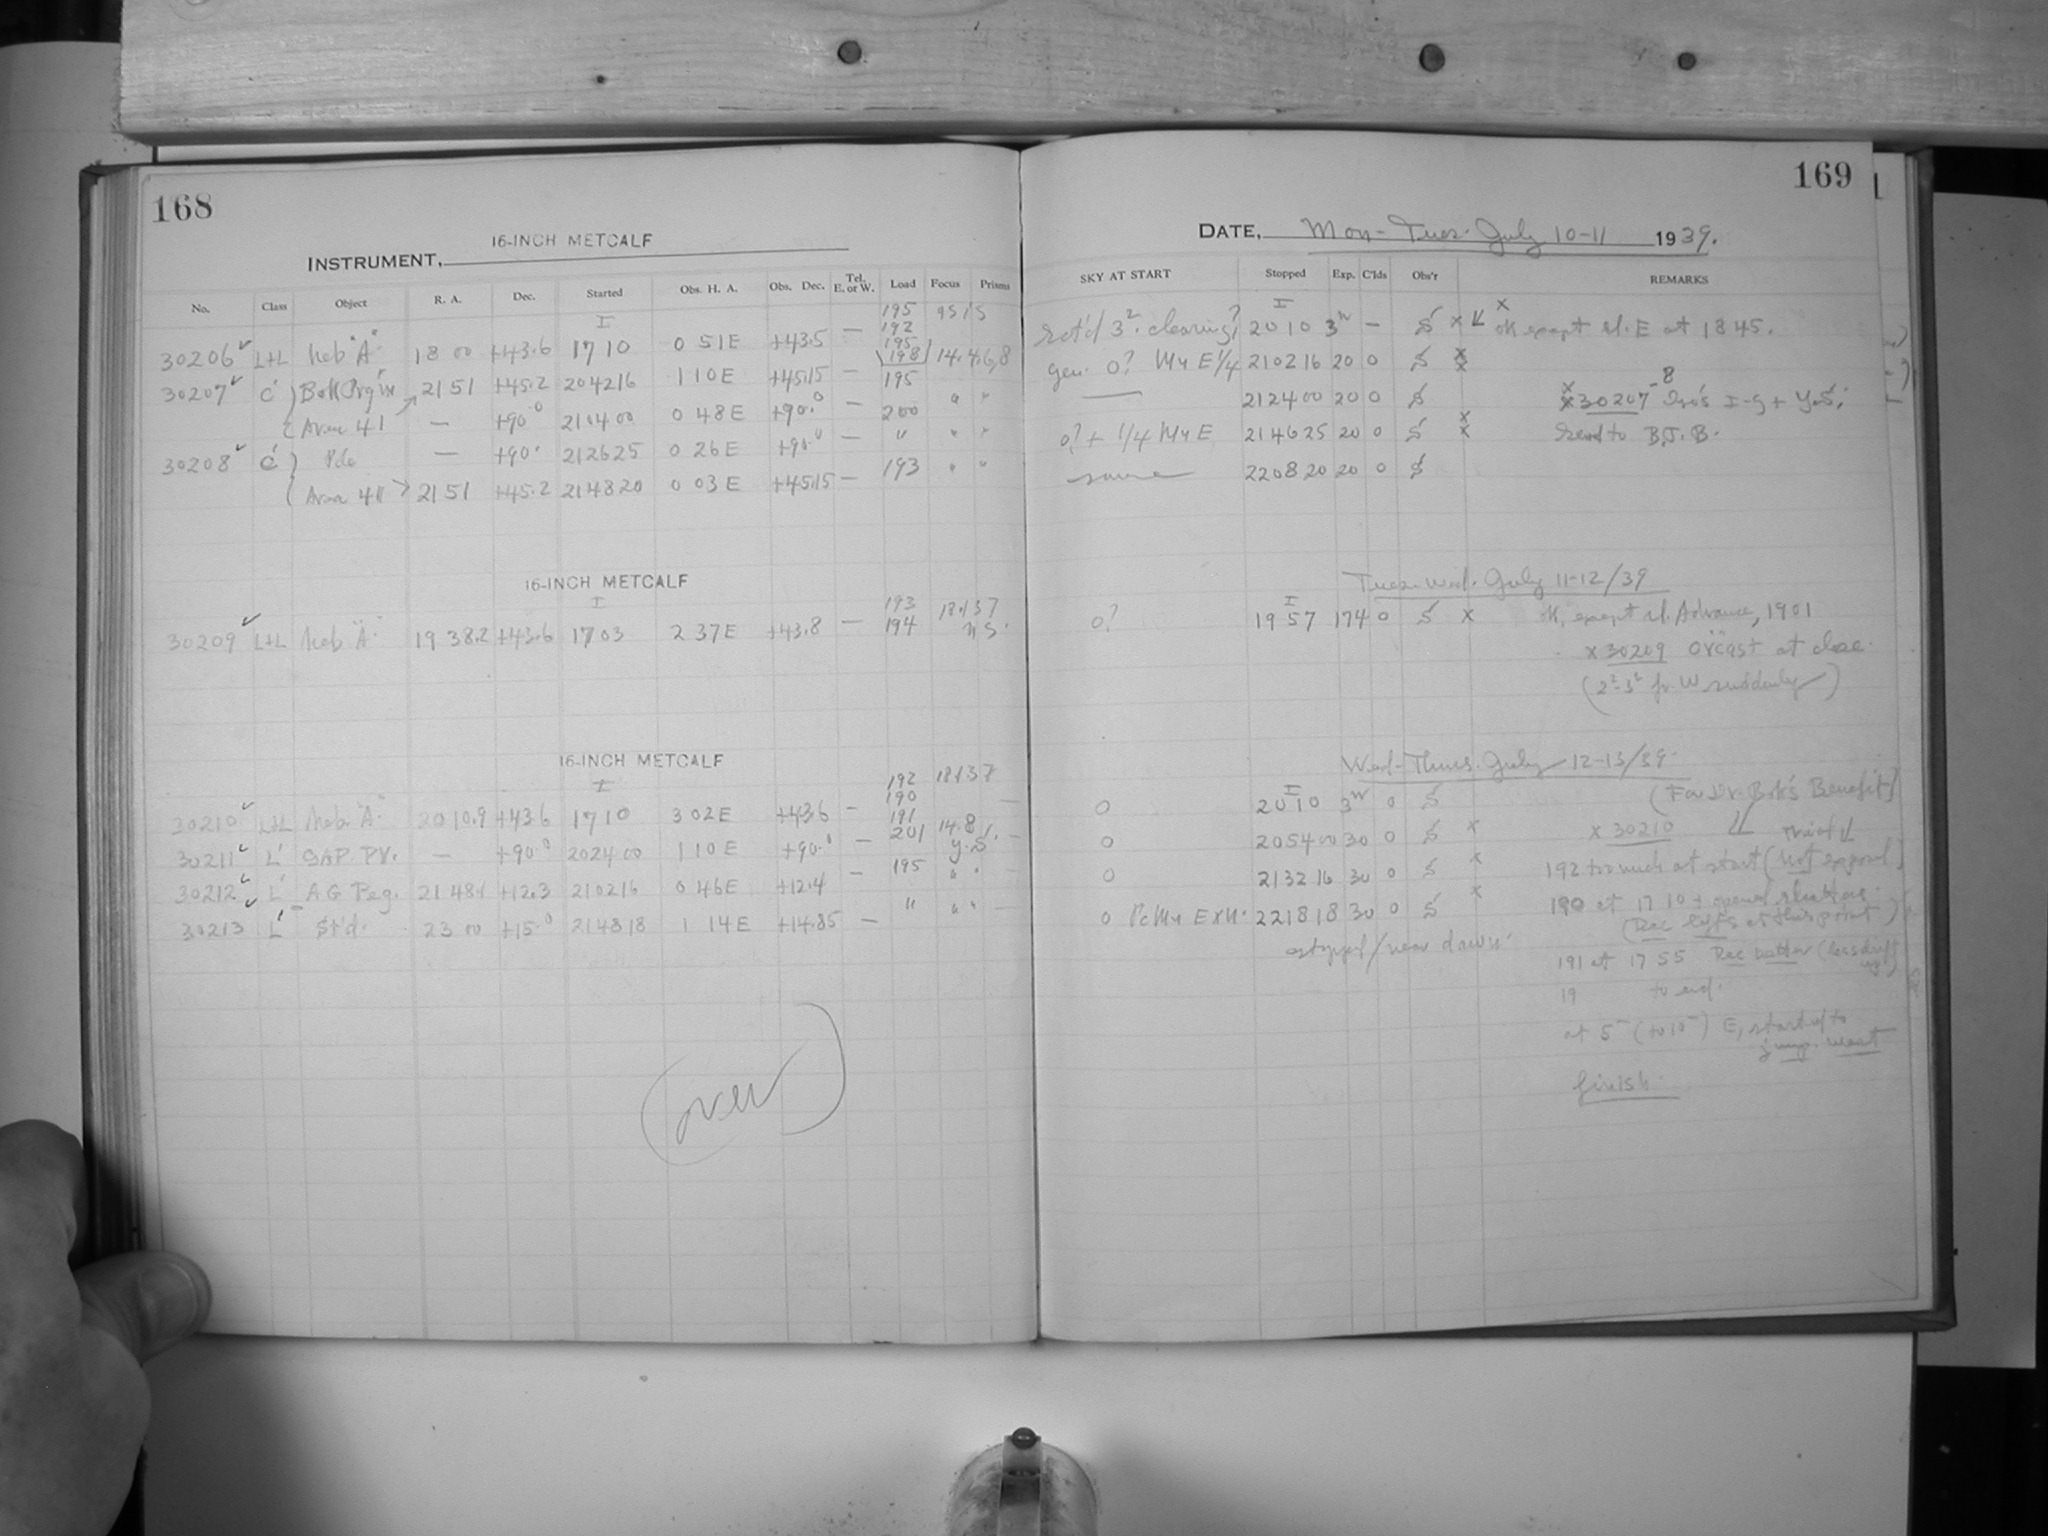 168
INSTRUMENT, 16-INCH METCALF
No. Class Object R. A. Dec. Started Obs. H. A. Obs. Dec. Tel. E. or W. Load Focus Prisms
I 195 9515
192
30206 L+L Neb "A" 18 00 +43.6 1710 0 51E +43.5 — 195
198 14.4.6,8
30207 C' 2151 +45.2 204216 1 10E +45.15 — 195
Area 41 — +90.0 210400 0 48E +90.0 — 200 " "
30208 C' Pole — +90. 212625 0 26E +90.0 — " " "
Area 41 2151 +45.2 214820 0 03E +45.15 — 193 " "
16-INCH METCALF
I 193 18.137
30209 L+L Neb "A" 19 38.2 +43.6 1703 2 37E +43.8 — 194
16-INCH METCALF
I 192 18137
190
30210 L+L Neb "A" 20 10.9 +43.6 1710 3 02E +43.6 — 191
30211 L' SAP. PV. — +90.0 202400 1 10E +90.0 — 201 14.8 Y.S.
30212 L' AG Peg. 21 48.1 +12.3 210216 0 46E +12.4 — 195 " "
30213 L' St'd. 23 00 +15.0 214818 1 14E +14.85 — " " "
(over)
169
DATE, Mon-Tues. July 10-11 1939.
SKY AT START Stopped Exp. C'lds Obs'r REMARKS
I
3². clearing? 2010 3h — S x ok except sl. E at 1845.
gen. 0? My E 1/4 210216 20 0 S x
— 212400 20 0 S x 30207-8 I-G + Y.S.
0? + 1/4 My E 214625 20 0 S x Send to B.J.B.
same 220820 20 0 S
Tues-Wed. July 11-12/39
I
0? 1957 174 0 S x ok, except sl. Advance, 1901
x 30209 ov'cast at close.
(2²-3² fr. W suddenly)
Wed-Thurs. July 12-13/39.
I
0 2010 3h 0 S (For Dr. Bok's Benefit)
0 205400 30 0 S x x 30210
0 213216 30 0 S x 192 too much at start (Not exposed)
0 221818 30 0 S x 190 at 1710 + opened shutters.
stopped/near dawn. (Dec left at this point)
191 at 1755 Dec better
19 to end.
at 5- (to 10-) E, started to
jump. West
finish.